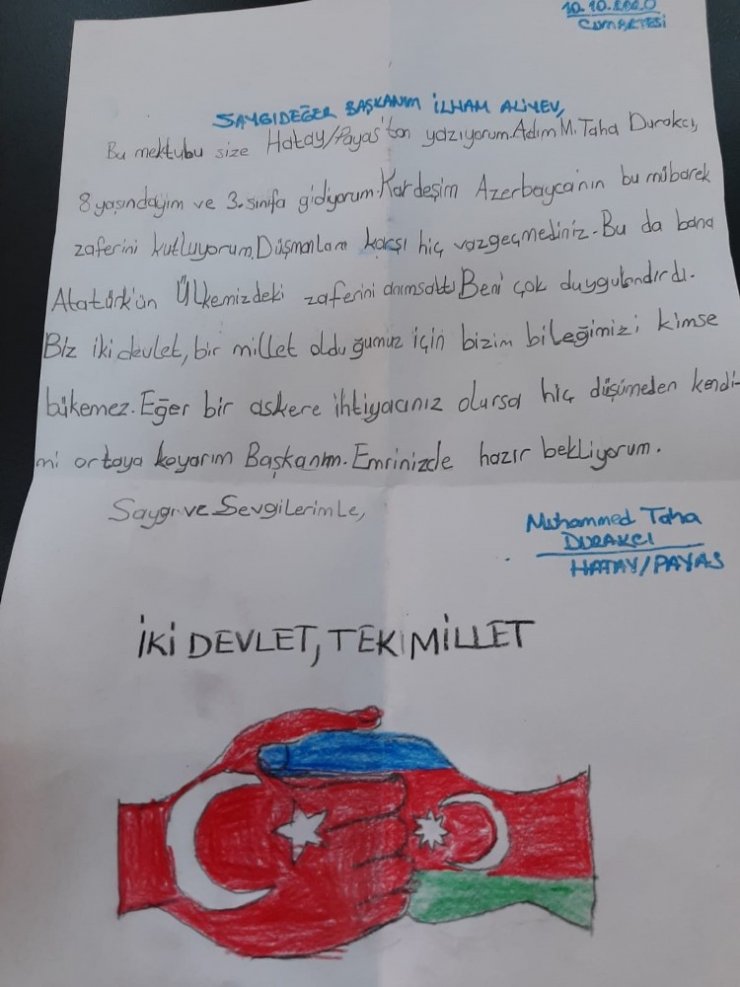 10.10.2020
CUMARTESİ
SAYGIDEĞER BAŞKANIM İLHAM ALİYEV,
Bu mektubu size Hatay/Payas'tan yazıyorum.Adım M.Taha Durakcı,
8 yaşındayım ve 3.sınıfa gidiyorum.Kardeşim Azerbayca'nın bu mübarek
zaferini kutluyorum.Düşmanlara karşı hiç vazgeçmediniz.Bu da bana
Atatürk'ün Ülkemizdeki zaferini anımsattı.Beni çok duygulandırdı.
Biz iki devlet, bir millet olduğumuz için bizim bileğimizi kimse
bükemez.Eğer bir askere ihtiyacınız olursa hiç düşümeden kendi-
mi ortaya koyarım Başkanım.Emrinizde hazır bekliyorum.
Saygı ve Sevgilerimle,
Muhammed Taha
DURAKCI
HATAY/PAYAS
İKİ DEVLET, TEK MİLLET